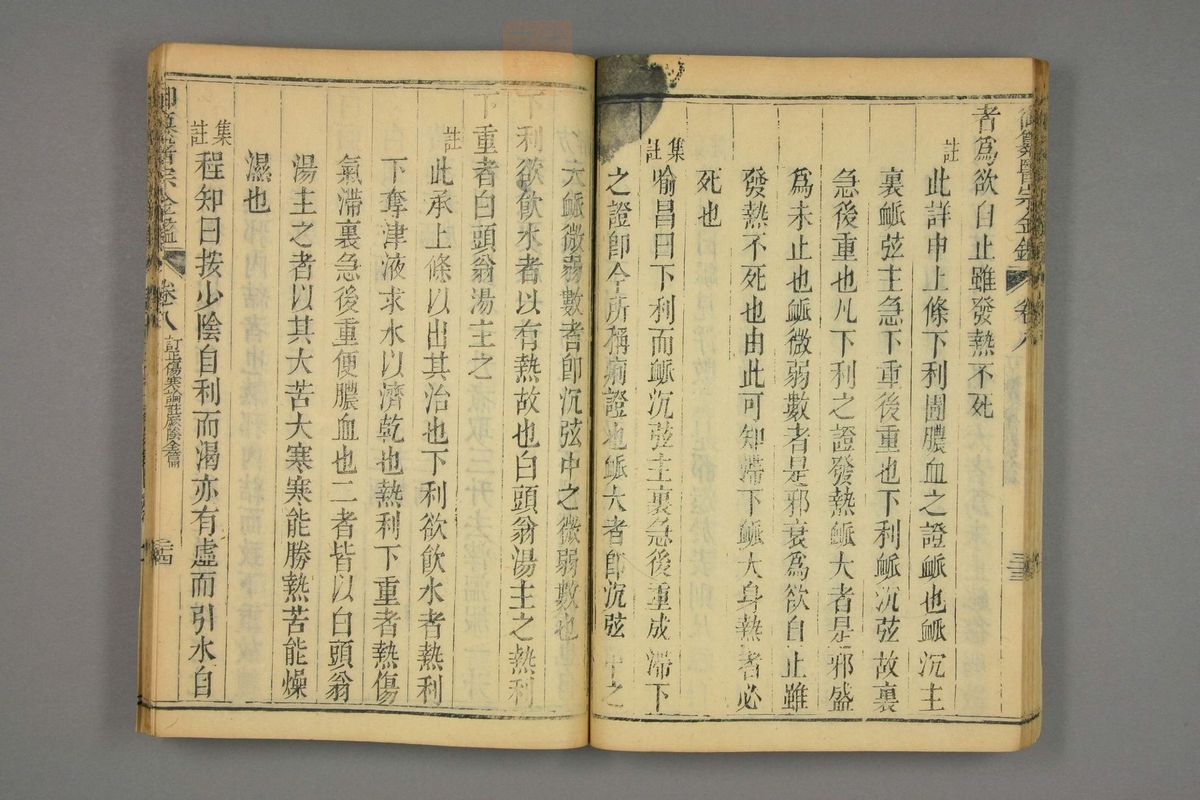 御纂醫宗金鑑 卷八 三三
者為欲自止雖發熱不死
註 此詳申上條下利圊膿血之證脈也脈沉主
裏脈弦主急下重後重也下利脈沉弦故裏
急後重也凡下利之證發熱脈大者是邪盛
為未止也脈微弱數者是邪衰為欲自止雖
發熱不死也由此可知滯下脈大身熱者必
死也
集註 喻昌曰下利而脈沉弦主裏急後重成滯下
之證卽今所稱痢證也脈大者卽沉弦中之
大脈微弱數者卽沉弦中之微弱數也
下利欲飲水者以有熱故也白頭翁湯主之熱利
下重者白頭翁湯主之
註 此承上條以出其治也下利欲飲水者熱利
下奪津液求水以濟乾也熱利下重者熱傷
氣滯裏急後重便膿血也二者皆以白頭翁
湯主之者以其大苦大寒寒能勝熱苦能燥
濕也
集註 程知曰按少陰自利而渴亦有虛而引水自
御纂醫宗金鑑 卷八 訂正傷寒論註厥陰全篇 三四